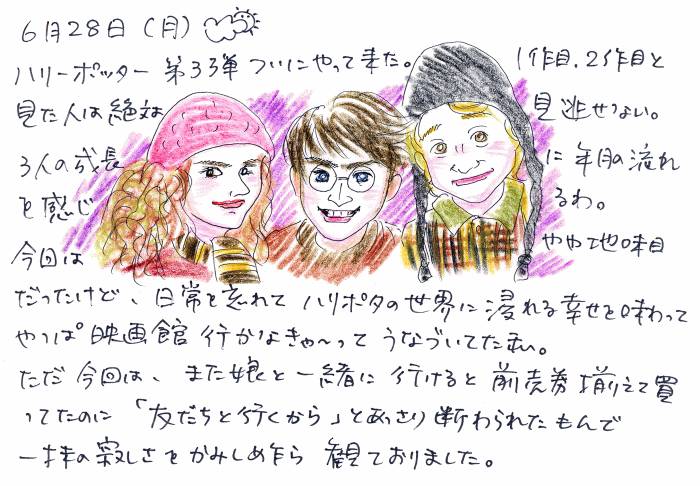 6月28日(月)
ハリーポッター 第3弾 ついにやって来た。 1作目.2作目と
見た人は絶対 見逃せない。
3人の成長 に 年月の流れ
を感じ るわ。
今回は やや地味目
だったけど、日常を忘れて ハリポタの世界に浸れる幸せを味わって
やっぱ映画館 行かなきゃ〜って うなづいてた私。
ただ 今回は、また娘と一緒に 行けると 前売券 揃えて買
ってたのに 「友だちと行くから」とあっさり断わられたもんで
一抹の寂しさを かみしめ乍ら 観ておりました。